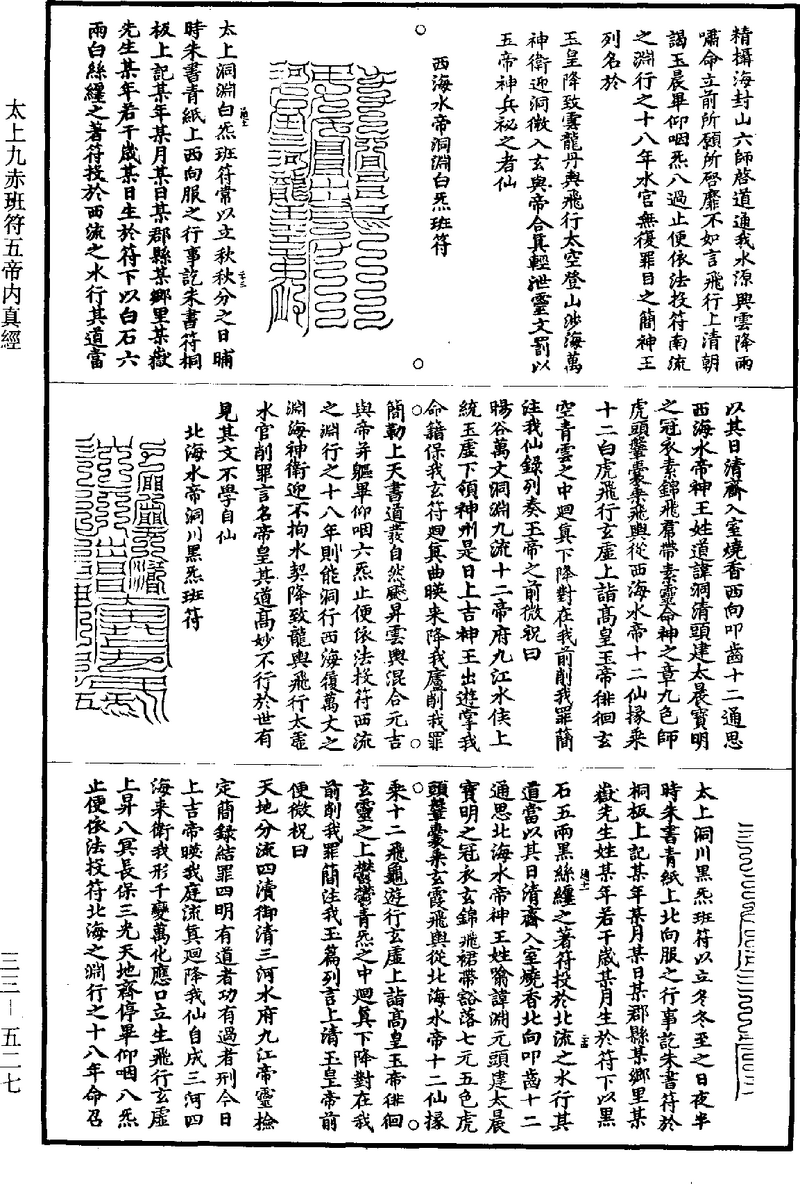 太上九赤班符五帝内真經
三三—五二七
精攝海封山六師啓道通我水源興雲降雨
嘯命立前所願所啓靡不如言飛行上清朝
謁玉晨畢仰咽炁八過止便依法投符南流
之淵行之十八年水官無復罪目之簡神王
列名於
玉皇降致雲龍丹輿飛行太空登山涉海萬
神衛迎洞微入玄與帝合真輕泄靈文罰以
五帝神兵祕之者仙
西海水帝洞淵白炁班符
太上洞淵白炁班符常以立秋秋分之日晡
時朱書青紙上西向服之行事訖朱書符桐
板上記某年某月某日某郡縣某鄉里某嶽
先生某年若干歲某日生於符下以白石六
兩白絲纏之著符投於西流之水行其道當
以其日清齋入室燒香西向叩齒十二通思
西海水帝神王姓道諱洞清頭建太晨寶明
之冠衣素錦飛帬帶素靈命神之章九色師
虎頭鞶囊乘飛輿從西海水帝十二仙掾乘
十二白虎飛行玄虛上詣高皇玉帝徘徊玄
空青雲之中迴真下降對在我前削我罪簡
注我仙錄列奏玉帝之前微祝曰
暘谷萬丈洞淵九流十二帝府九江水侯上
統玉虛下領神州是日上吉神王出遊掌我
命籍保我玄符迴真曲映來降我廬削我罪
簡勒上天書道發自然飈昇雲輿混合元吉
與帝弄軀畢仰咽六炁止便依法投符西流
之淵行之十八年則能洞行西海復萬丈之
淵海神衛迎不拘水契降致龍輿飛行太虛
水官削罪言名帝皇其道高妙不行於世有
見其文不學自仙
北海水帝洞川黑炁班符
太上洞川黑炁班符以立冬冬至之日夜半
時朱書青紙上北向服之行事訖朱書符於
桐板上記某年某月某日某郡縣某鄉里某
嶽先生姓某年若干歲某月生於符下以黑
石五兩黑絲纏之著符投於北流之水行其
道當以其日清齋入室燒香北向叩齒十二
通思北海水帝神王姓喻諱淵元頭建太晨
寶明之冠衣玄錦飛裙帶豁落七元五色虎
頭鞶囊乘玄霞飛輿從北海水帝十二仙掾
乘十二飛龜遊行玄虛上詣高皇玉帝徘徊
玄靈之上鬱鬱青炁之中迴真下降對在我
前削我罪簡注我玉篇列言上清玉皇帝前
便微祝曰
天地分流四瀆御清三河水府九江帝靈檢
定簡錄結罪四明有道者功有過者刑今日
上吉帝映我庭流真迴降我仙自成三河四
海來衛我形千變萬化應口立生飛行玄虛
上昇八冥長保三光天地齊停畢仰咽八炁
止便依法投符北海之淵行之十八年命召